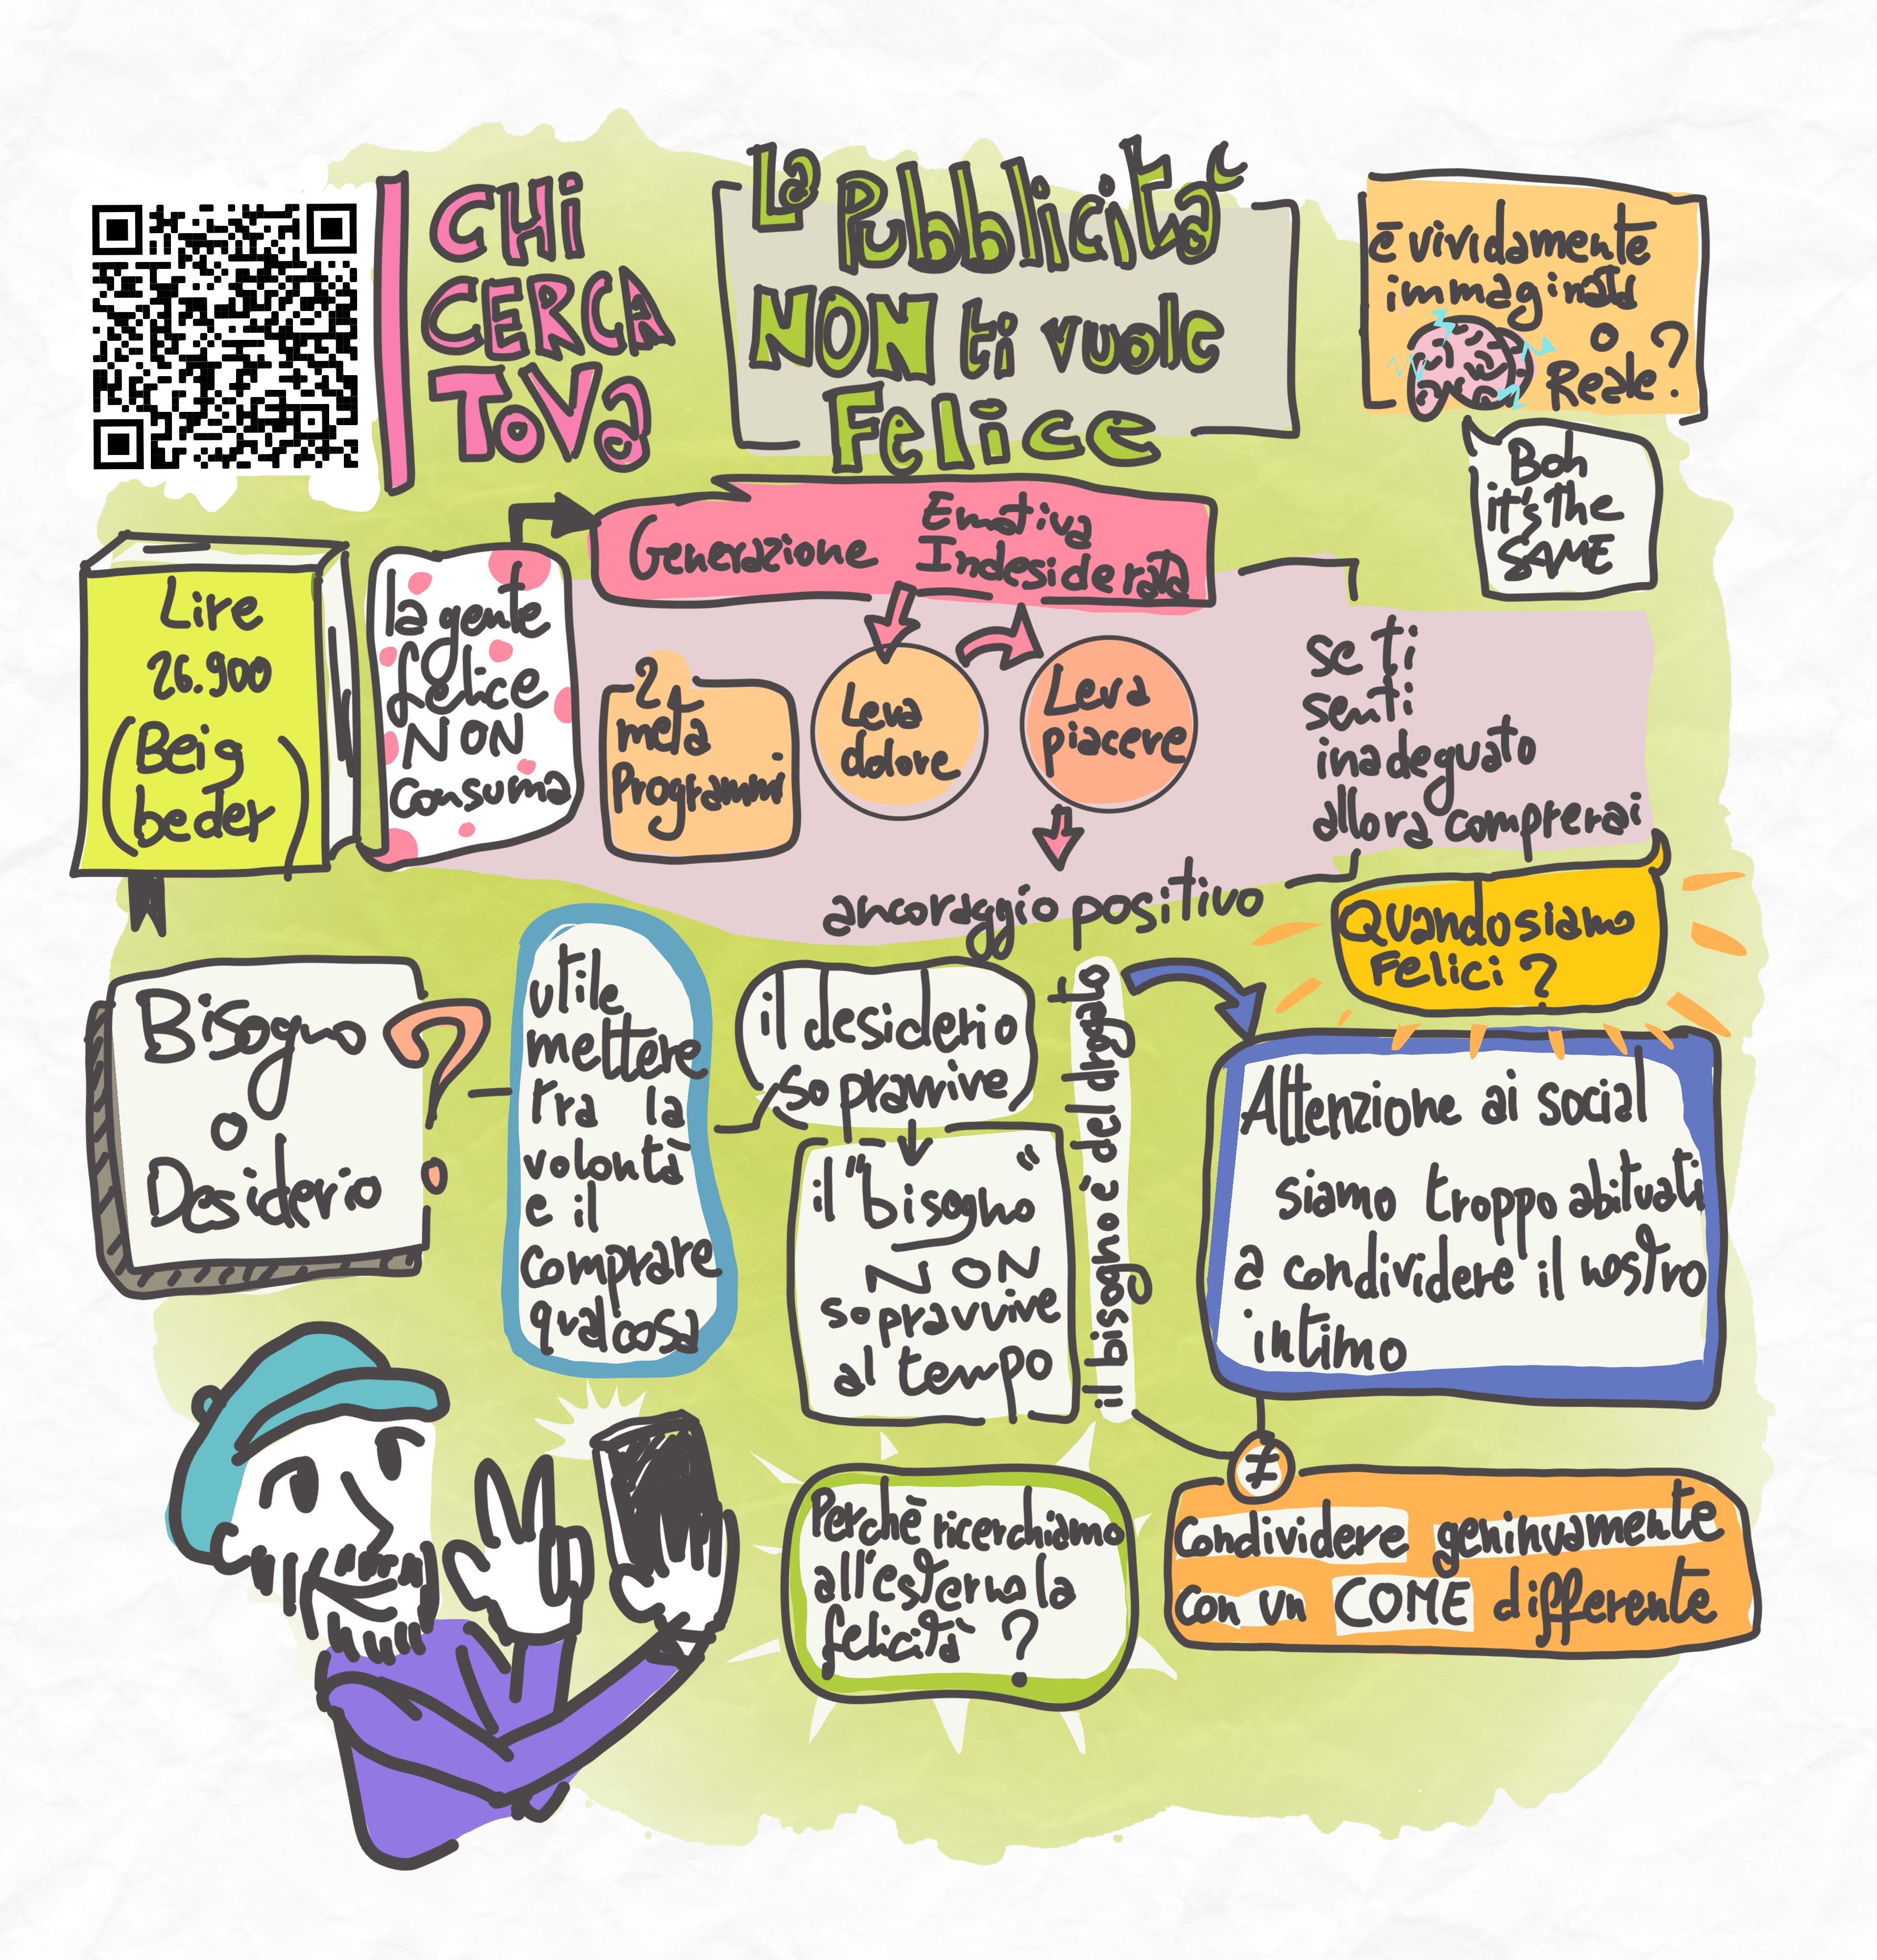 CHi
CERCA
ToVa
La Pubblicità
NON ti vuole
Felice
è vividamente
immaginato
o
Reale?
Boh
it's the
SAME
Generazione Emotiva
Indesiderata
Lire
26.900
(Beig
beder)
la gente
felice
NON
consuma
2
meta
Programmi
Leva
dolore
Leva
piacere
ancoraggio positivo
se ti
senti
inadeguato
allora comprerai
Quando siamo
Felici?
Bisogno
o
Desiderio
?
utile
mettere
tra la
volontà
e il
comprare
qualcosa
il desiderio
sopravvive
il "bisogno"
NON
sopravvive
al tempo
il bisogno è del drogato
Attenzione ai social
siamo troppo abituati
a condividere il nostro
intimo
≠
Condividere geninuamente
con un COME differente
Perchè ricerchiamo
all'esterno la
felicità?